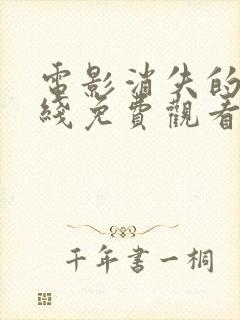 電影消失的
綫免費觀看
千年書一桐